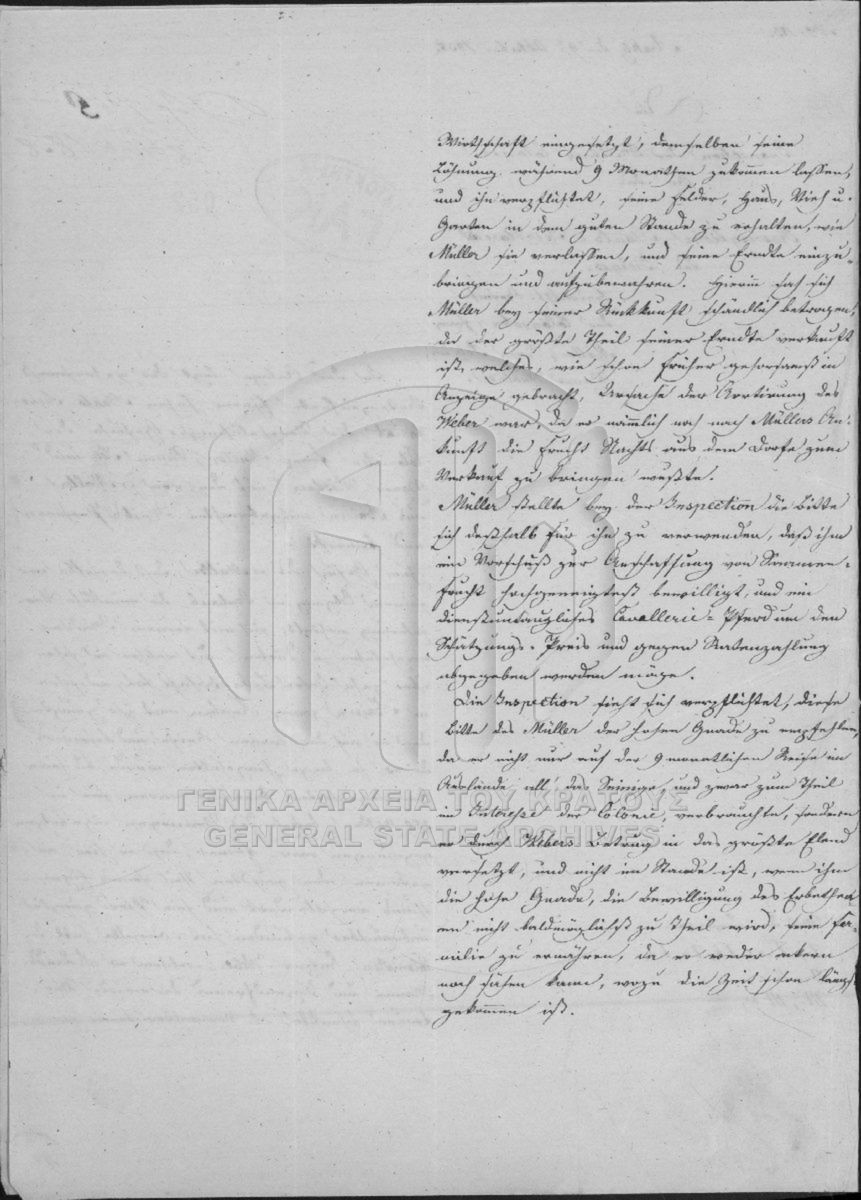 Wirthschaft eingesetzt, demselben seine
Löhnung während 9 Monathen zukommen lassen,
und ihn verpflichtet, seine Felder, Haus, Vieh u.
Garten in dem guten Stande zu erhalten, wie
Müller sie verlassen, und seine Erndte einzu-
bringen und aufzubewahren. Hierin sah sich
Müller bey seiner Rückkunft schändlich betrogen,
da der größte Theil seiner Erndte verkauft
ist, welches, wie schon früher gehorsamst in
Anzeige gebracht, Ursache der Arretirung des
Weber war, da er nämlich noch nach Müllers An-
kunft die Frucht Nachts aus dem Dorfe zum
Verkauf zu bringen wußte.
Müller stellte bey der Inspection die Bitte
sich deßhalb für ihn zu verwenden, daß ihm
ein Vorschuß zur Anschaffung von Saamen-
frucht hochgeneigtest bewilligt, und ein
dienstuntaugliches Cavallerie-Pferd um den
Schätzungs-Preis und gegen Ratenzahlung
abgegeben werden möge.
Die Inspection sieht sich verpflichtet, diese
Bitte des Müller der hohen Gnade zu empfehlen,
da er nicht nur auf der 9 monatlichen Reise im
Auslande all' das Seinige, und zwar zum Theil
im Interesse der Colonie, verbrauchte, sondern
er durch Webers Betrug in das größte Elend
versetzt, und nicht im Stande ist, wenn ihm
die hohe Gnade, die Bewilligung des Erbethen-
en nicht baldmöglichst zu Theil wird, seine Fa-
milie zu ernähren, da er weder ackern
noch säen kann, wozu die Zeit schon längst
gekommen ist.
ΓΕΝΙΚΑ ΑΡΧΕΙΑ ΤΟΥ ΚΡΑΤΟΥΣ
GENERAL STATE ARCHIVES